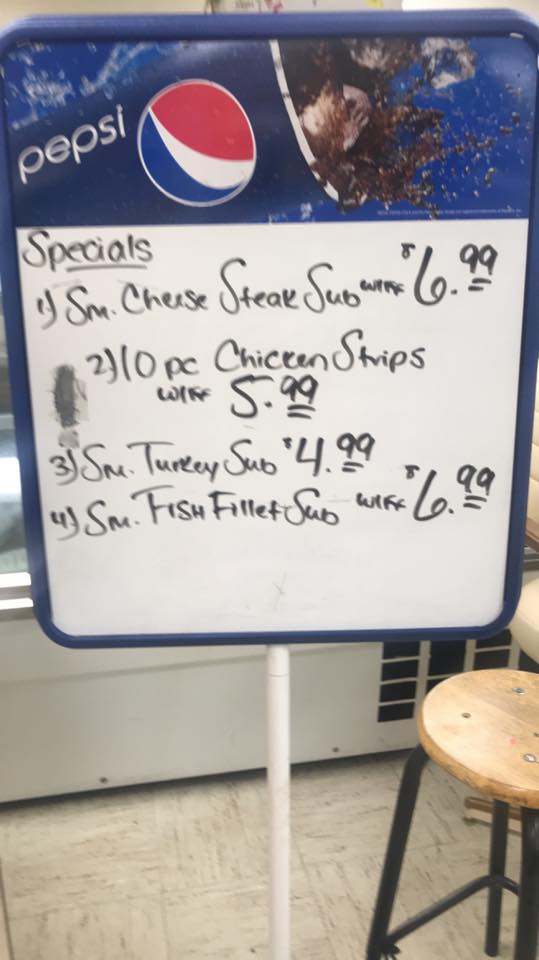 pepsi
Specials
1) Sm. Cheese Steak Sub w/FF $6.99
2) 10 pc Chicken Strips
w/FF 5.99
3) Sm. Turkey Sub $4.99
4) Sm. Fish Fillet Sub w/FF $6.99